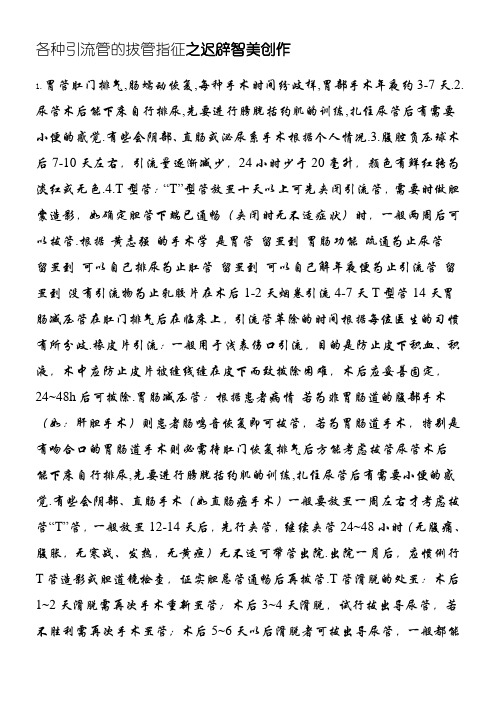 各种引流管的拔管指征之迟辟智美创作
1. 胃管肛门排气,肠蠕动恢复,每种手术时间纷歧样,胃部手术年夜约3-7天.2.
尿管术后能下床自行排尿,先要进行膀胱括约肌的训练,扎住尿管后有需要
小便的感觉.有些会阴部、直肠或泌尿系手术根据个人情况.3.腹腔负压球术
后7-10天左右，引流量逐渐减少，24小时少于20毫升，颜色有鲜红转为
淡红或无色.4.T型管：“T”型管放置十天以上可先夹闭引流管，需要时做胆
囊造影，如确定胆管下端已通畅（夹闭时无不适症状）时，一般两周后可
以拔管.根据 黄志强 的手术学 是胃管 留置到 胃肠功能 疏通为止尿管
留置到 可以自己排尿为止肛管 留置到 可以自己解年夜便为止引流管 留
置到 没有引流物为止乳胶片在术后1-2天烟卷引流4-7天T型管14天胃
肠减压管在肛门排气后在临床上，引流管革除的时间根据每位医生的习惯
有所分歧.橡皮片引流：一般用于浅表伤口引流，目的是防止皮下积血、积
液，术中应防止皮片被缝线缝在皮下而致拔除困难，术后应妥善固定，
24~48h后可拔除.胃肠减压管：根据患者病情 若为非胃肠道的腹部手术
（如：肝胆手术）则患者肠鸣音恢复即可拔管，若为胃肠道手术，特别是
有吻合口的胃肠道手术则必需待肛门恢复排气后方能考虑拔管尿管术后
能下床自行排尿,先要进行膀胱括约肌的训练,扎住尿管后有需要小便的感
觉.有些会阴部、直肠手术（如直肠癌手术）一般要放置一周左右才考虑拔
管“T”管，一般放置12-14天后，先行夹管，继续夹管24~48小时（无腹痛、
腹胀，无寒战、发热，无黄疸）无不适可带管出院.出院一月后，应惯例行
T管造影或胆道镜检查，证实胆总管通畅后再拔管.T管滑脱的处置：术后
1~2天滑脱需再次手术重新置管；术后3~4天滑脱，试行拔出导尿管，若
不胜利需再次手术置管；术后5~6天以后滑脱者可拔出导尿管，一般都能